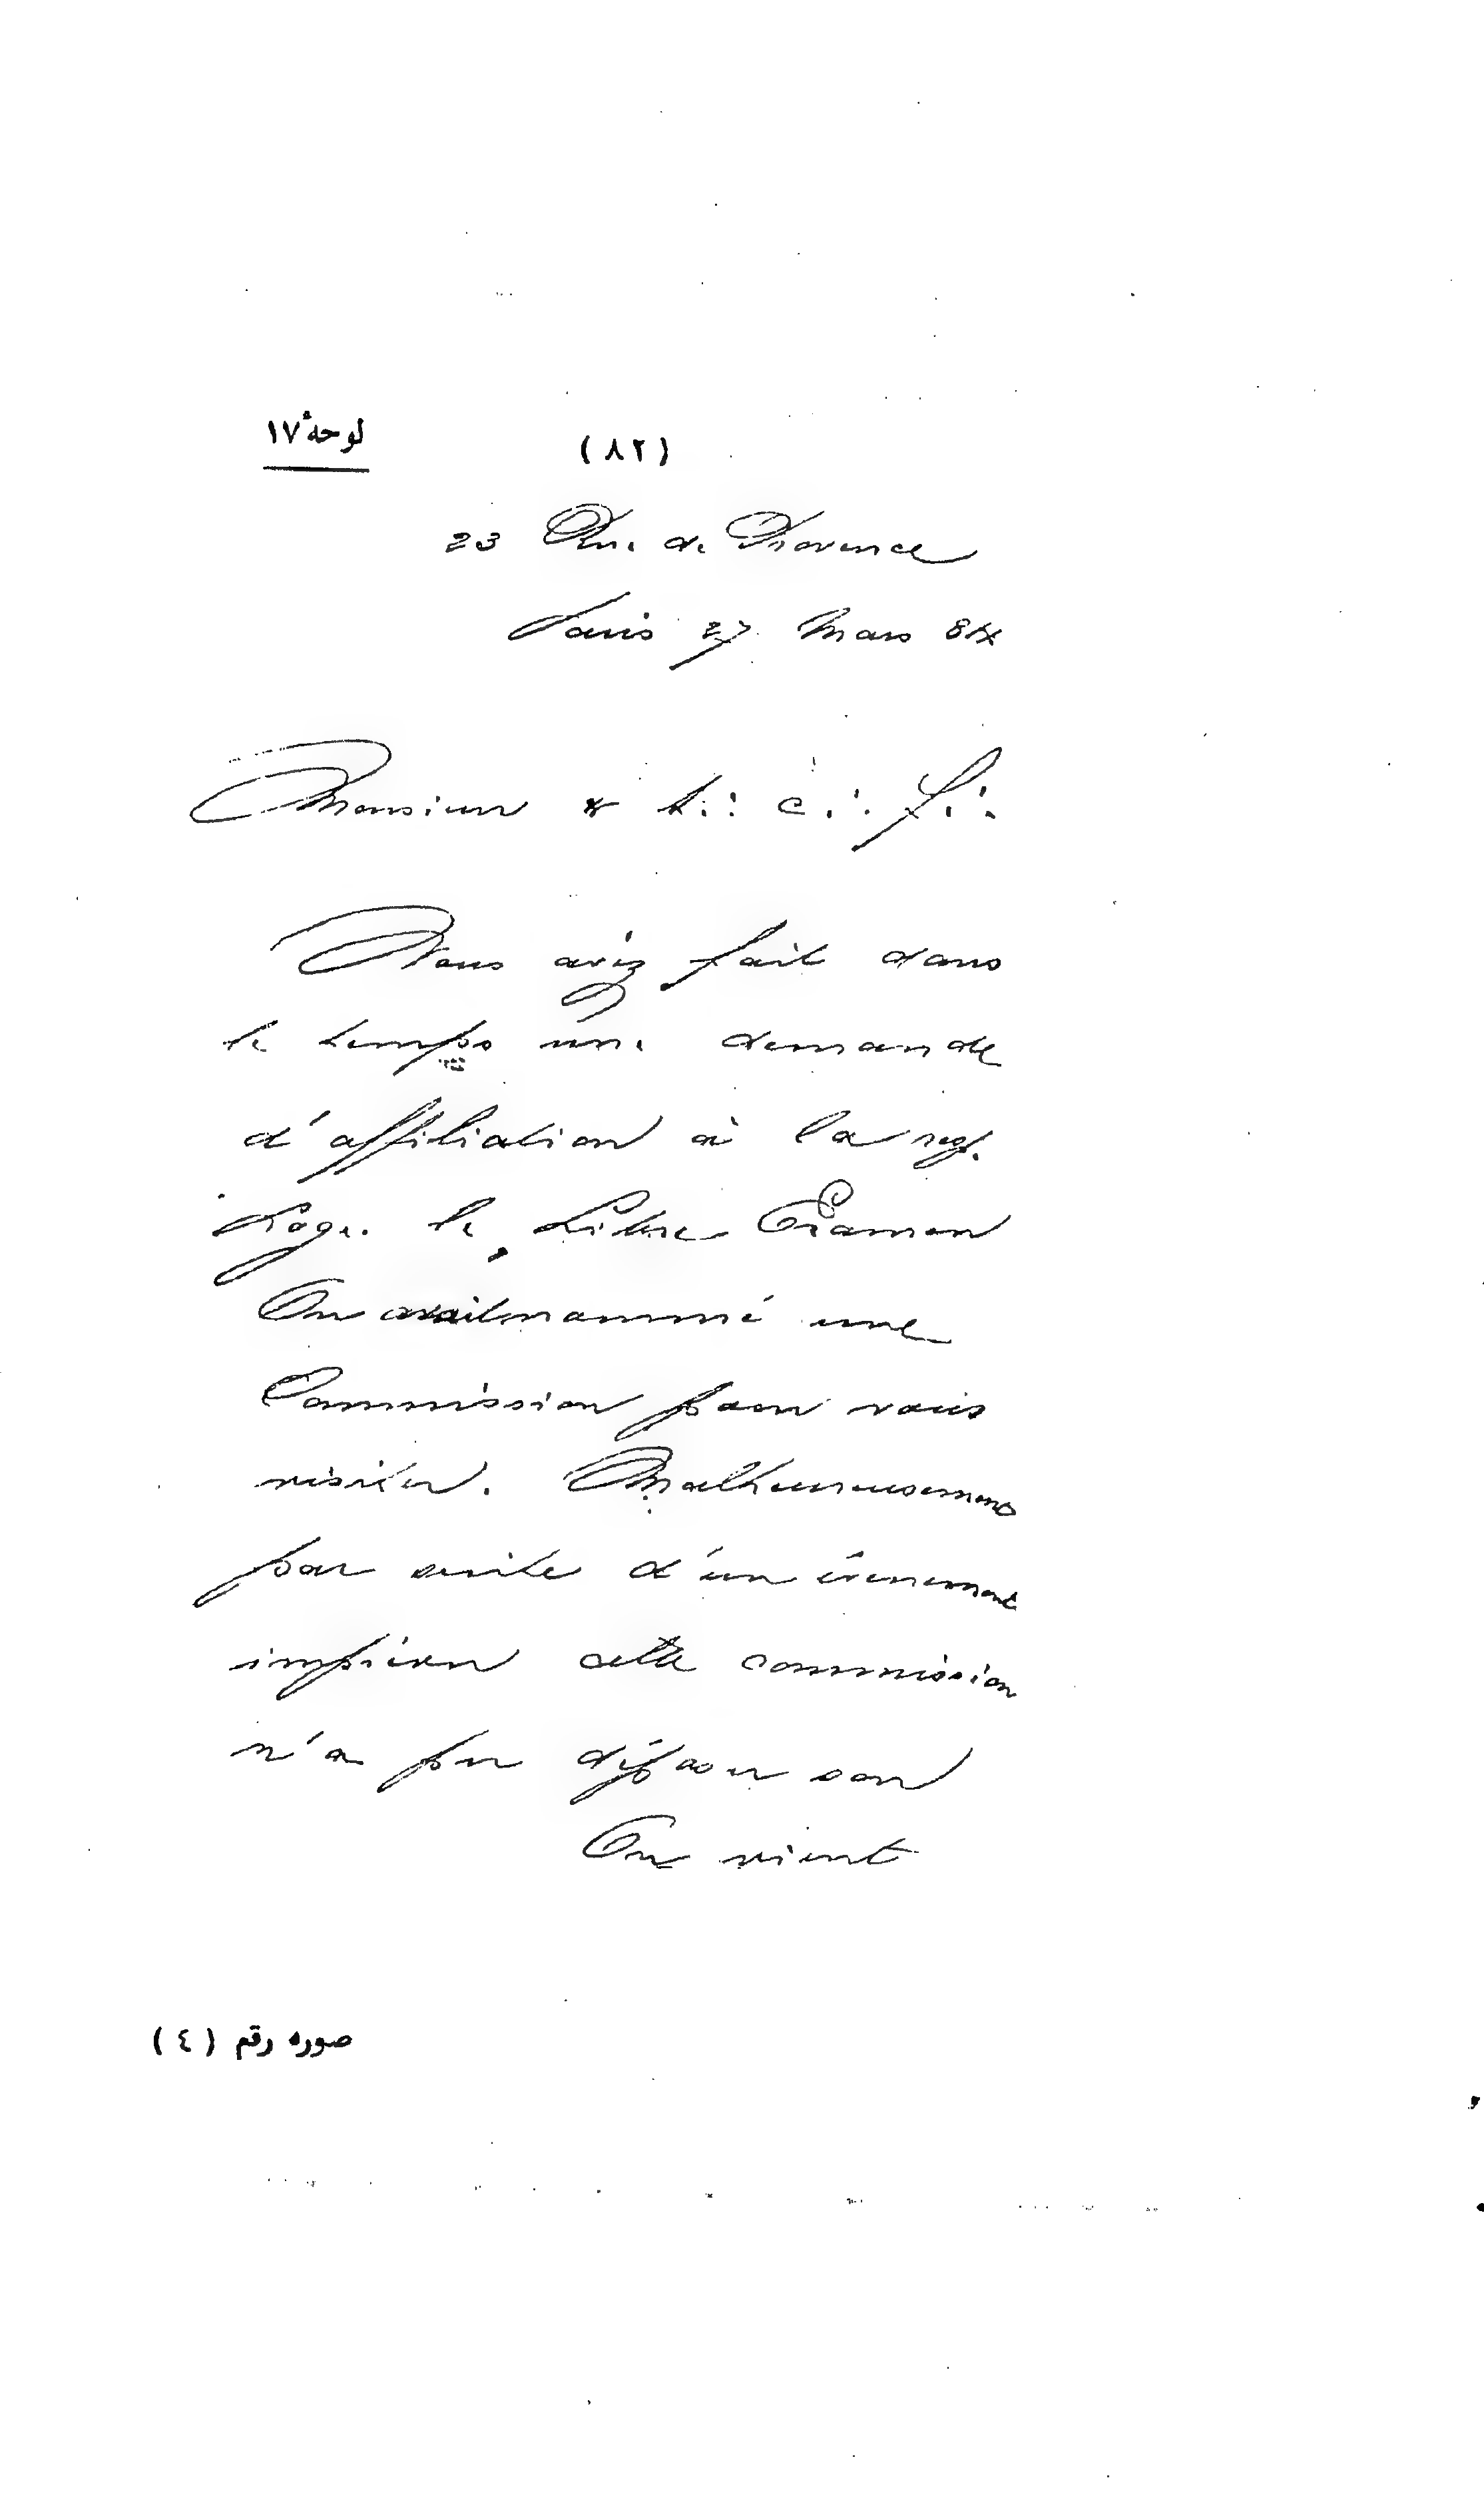 لوحة ١٧
(٨٢)
23 Rue de Provence
Paris 27 Mars 84
Monsieur & t∴ c∴ f∴
Vous aviez fait dans
le temps une demande
d'affiliation à la resp.
Loge le Libre Examen
On avait nommé une
Commission pour vous
visiter. Malheureusement
par suite d'un évènement
imprévu cette commission
n'a pu déposer son
On vient
صورة رقم (٤)